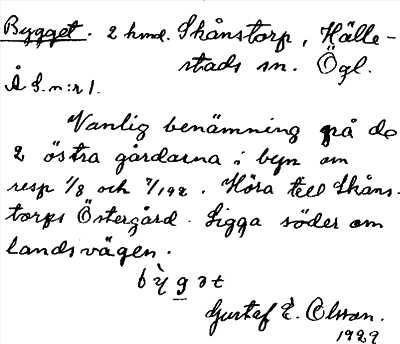 Bygget. 2 hmd. Skånstorp, Hälle-
stads sn. Ögl.
Å S.n:r 1.
Vanlig benämning på de
2 östra gårdarna i byn om
resp 1/8 och 7/192. Höra till Skåns-
torps Östergård. Ligga söder om
landsvägen.
bỳgət
Gustaf E. Olsson.
1929